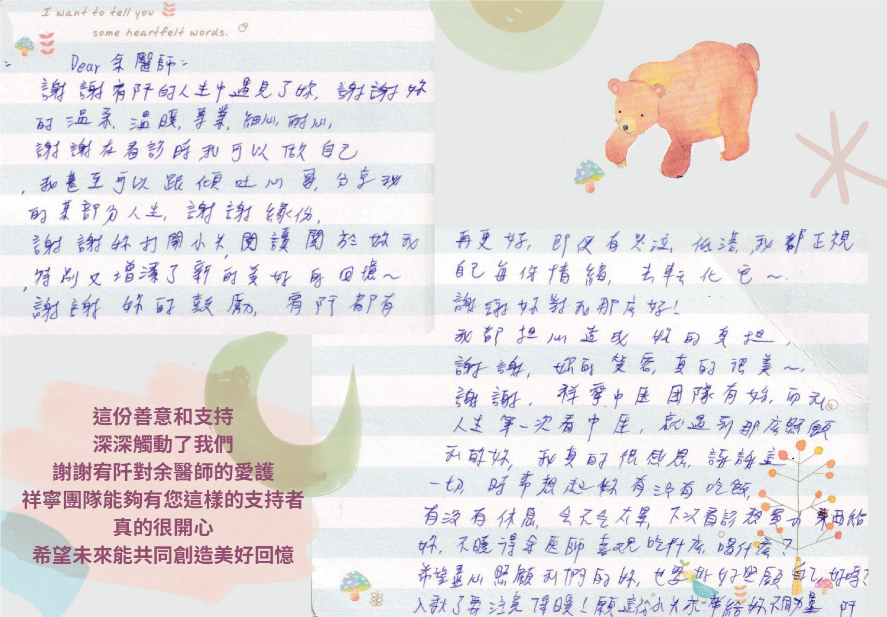 I want to tell you
some heartfelt words.
Dear 余醫師
謝謝宥阡的人生中遇見了妳, 謝謝妳
的溫柔, 溫暖, 專業, 細心, 耐心,
謝謝在看診時我可以做自己
, 我甚至可以跟傾吐心事, 分享我
的某部分人生, 謝謝緣份,
謝謝妳打開小火閱讀關於妳我
, 特別又增添了新的美好的回憶~
謝謝 妳的鼓勵, 宥阡都有
再更好, 即使有哭泣, 低落, 我都正視
自己每份情緒, 去轉化它~.
謝謝妳對我那麼好!
我都担心造成 妳的負担,
謝謝, 妳的笑容, 真的很美~,
謝謝, 祥寧中医團隊有妳, 而我
人生第一次看中医, 就遇到那麼照顧
我的妳, 我真的很感恩, 謝謝這
一切, 時常想起妳有沒有吃飯,
有沒有休息, 會不會太累, 下次看診想買
給
妳, 不曉得余医師喜歡吃什麼, 喝什麼?
希望盡心照顧我們的妳, 也要好好照顧自己, 好嗎?
入秋了要注意保暖! 願這 給妳 阡
這份善意和支持
深深觸動了我們
謝謝宥阡對余醫師的愛護
祥寧團隊能夠有您這樣的支持者
真的很開心
希望未來能共同創造美好回憶